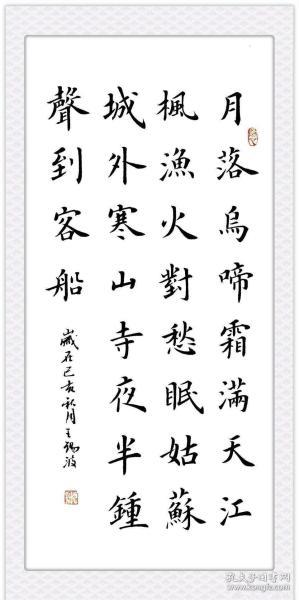 月落烏啼霜滿天江
楓漁火對愁眠姑蘇
城外寒山寺夜半鍾
聲到客船
歲在己亥秋月王錫波
孔夫子旧书网